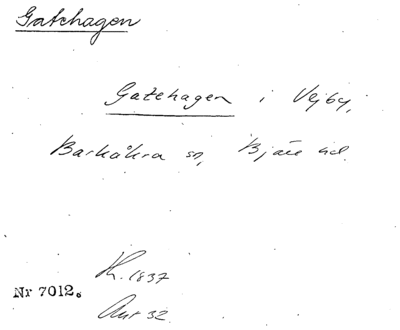 Gatehagen
Gatehagen i Vejby,
Barkåkra sn, Bjäre hd.
Kr. 1837
Nr 7012.
Ant 32